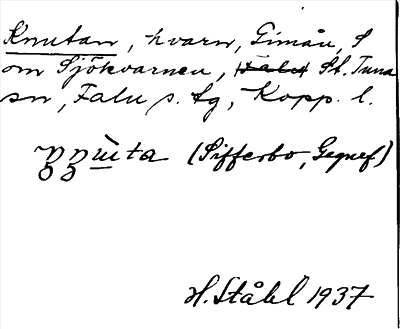 Knutan, kvarn, Gimån, S
om Sjökvarnen, St. Tuna
sn, Falu s. tg, Kopp. l.
(Sifferbo, Gagnef)
H. Ståhl 1937